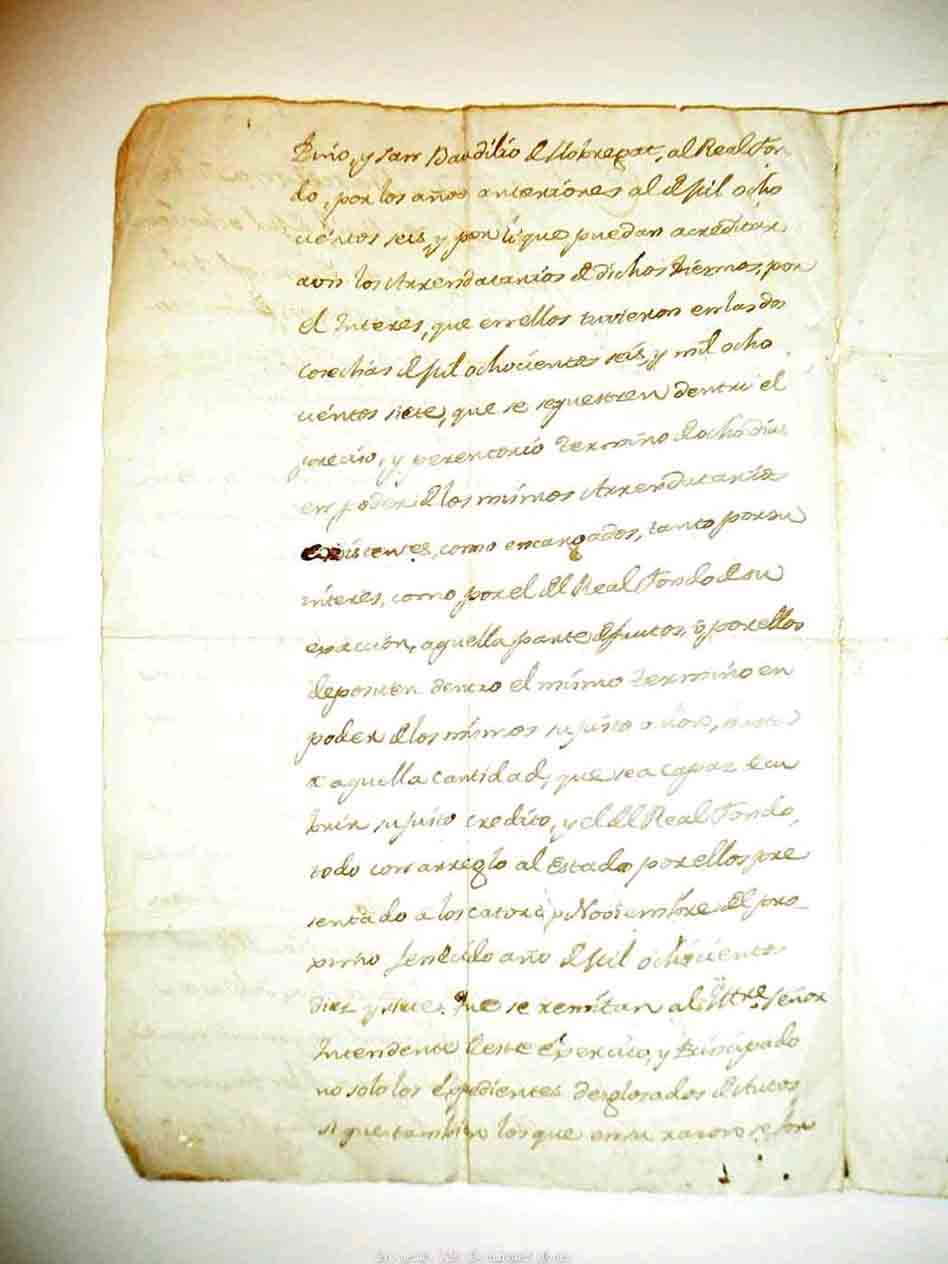 y San Baudilio de Llobregat, al Real Fon
do, por los años anteriores al de Mil ocho
cientos seis, y por lo que puedan acreditar
los Arrendatarios de dichos Diezmos, por
el Interes, que en ellos tuvieron en las dos
cosechas de Mil ochocientos seis, y mil ocho
cientos siete, que se sequestren dentro el
preciso, y perentorio termino de ocho dias
en poder de los mismos Arrendatarios
existentes, como encargados, tanto por su
interes, como por el del Real Fondo de su
exaccion, aquella parte de frutos, o por ellos
depositen dentro el mismo termino en
poder de los mismos su justo valor,
aquella cantidad, que sea capaz de cu
brir su justo credito, y el del Real Fondo,
todo con arreglo al Estado por ellos pre
sentado a los catorce Noviembre del pro
ximo fenecido año de Mil ochociento
diez y Que se remitan al Iltre. Señor
Intendente de este Exercito, y Principado
no solo los Expedientes desglosados de Autos
si que tambien los que en su razon se for